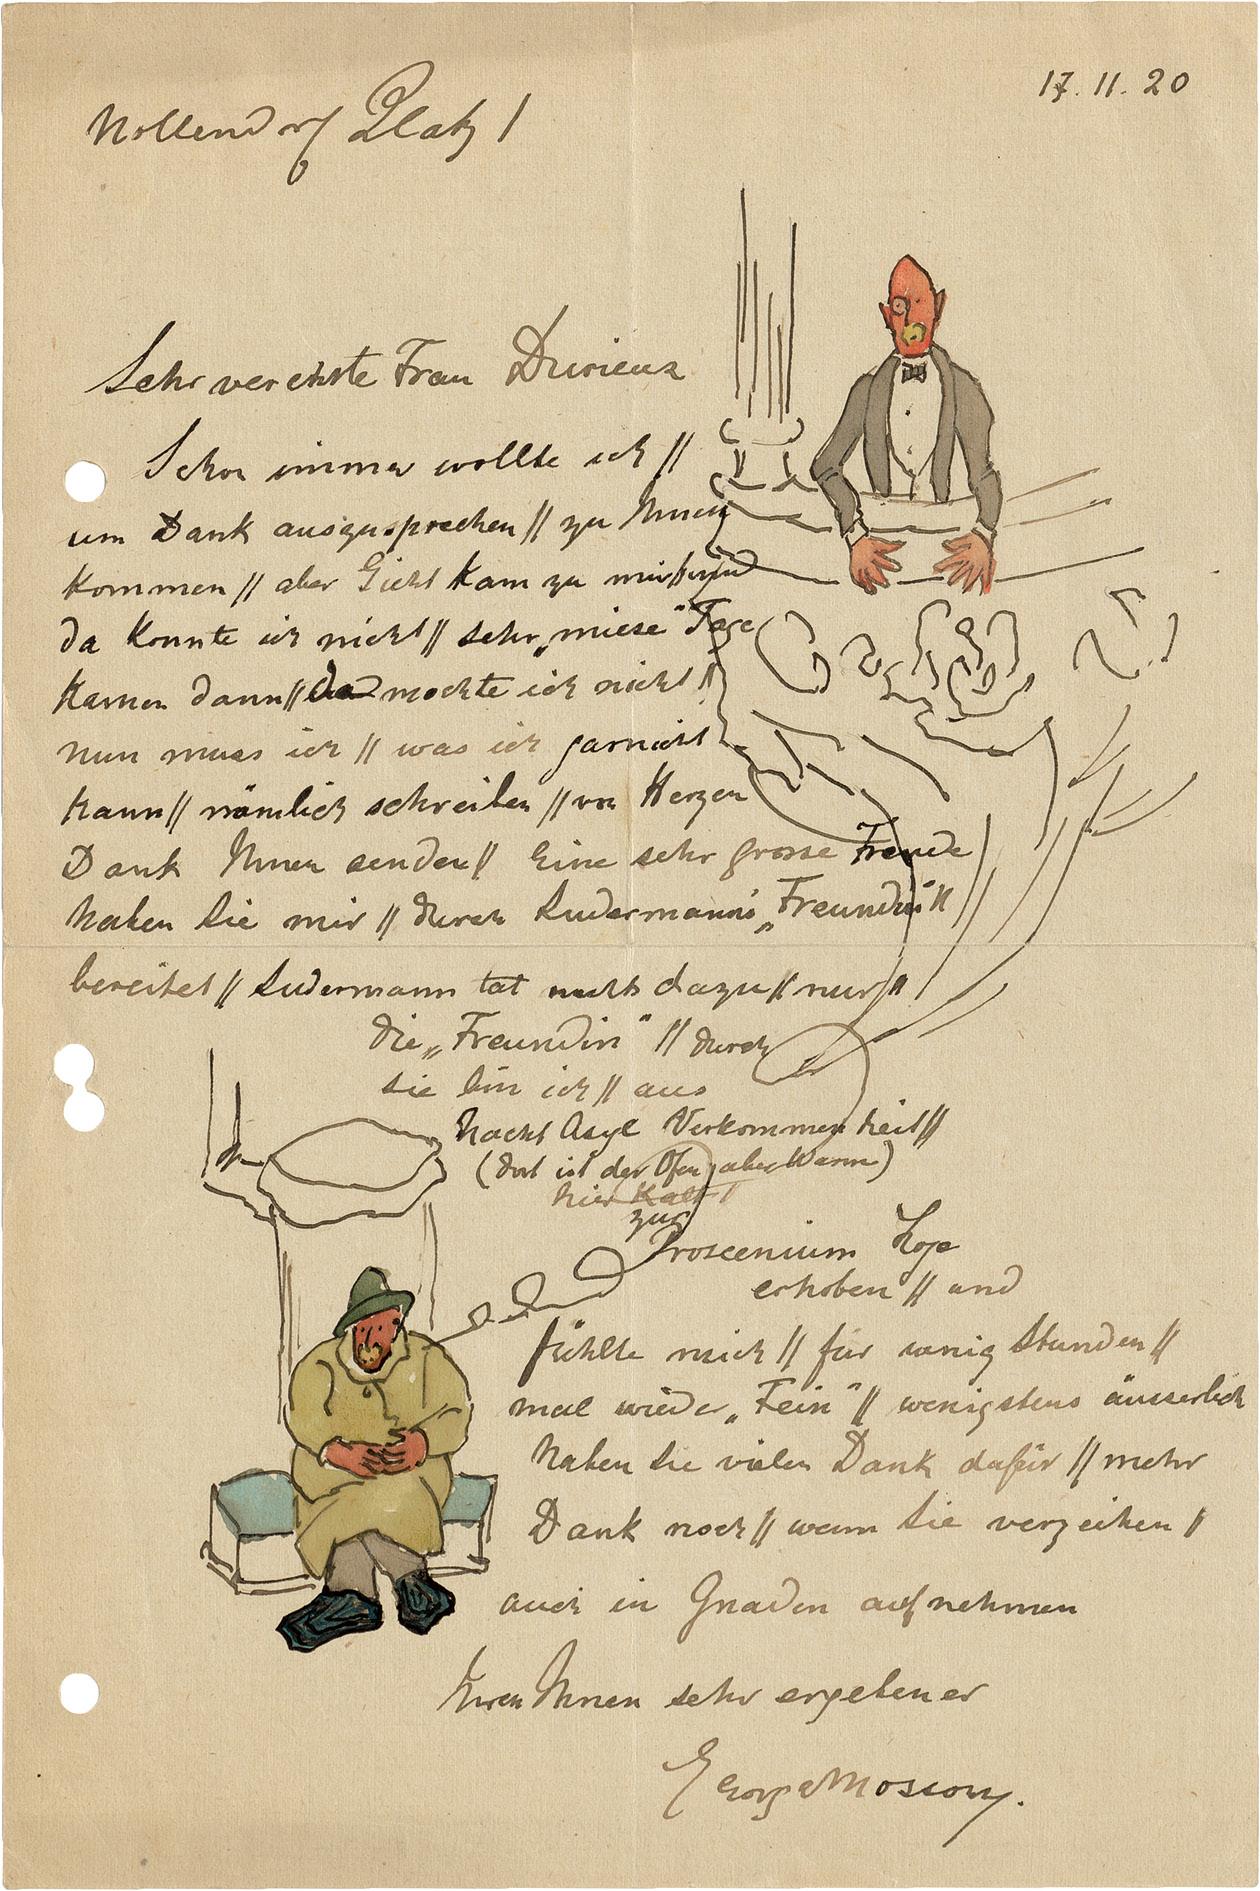 17.11.20
Nollendorf Platz 1
Sehr verehrte Frau Durieux
Schon immer wollte ich //
um Dank auszusprechen // zu Ihnen
kommen // aber Gicht kam zu mir // und
da konnte ich nicht // sehr „miese" Tage
kamen dann // da mochte ich nicht //
nun muss ich // was ich garnicht
kann // nämlich schreiben // von Herzen
Dank Ihnen senden // Eine sehr grosse Freude
haben Sie mir // durch Sudermann's „Freundin" //
bereitet // Sudermann tat nichts dazu // nur //
die „Freundin" // durch
sie bin ich // aus
Nacht Asyl Verkommenheit //
(dort ist der Ofen aber Warm)
hier Kalt!
zur
Proscenium Loge
erhoben // und
fühlte mich // für wenig Stunden //
mal wieder „Fein" // wenigstens äusserlich
haben Sie vielen Dank dafür // mehr
Dank noch // wenn Sie verzeihen /
auch in Gnaden aufnehmen
Ihren Ihnen sehr ergebener
George Mosson.